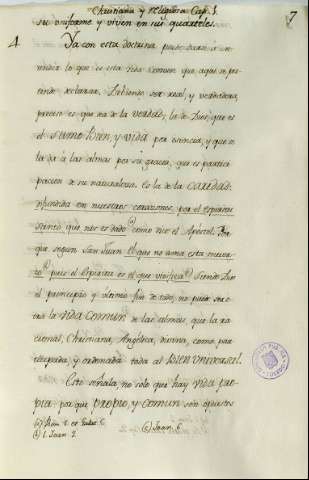 Christiana y religiosa Cap. I. 7
su uniforme y viven en sus quarteles.
4 Ya con esta doctrina puede darse à en-
tender lo que es esta vida comun que aqui se pre-
tende declarar. Debiendo ser real, y verdadera,
parece es que sea de la verdad; la de Dios, que es
el sumo bien, y vida por esencia, y que se
la dà à las almas por su gracia, que es partici-
pacion de su naturaleza. Es la de la caridad:
difundida en nuestros corazones, por el espiritu
santo, que nos es dado (a) como dice el Apóstol.
que segun San Juan el que no ama esta muer-
to (b) pues el Espiritu es el que vivifica (c) siendo Dios
el principio y ultimo fin de todo, no puede
la vida comun de las almas, que la ra-
cional, Christiana, Angelica, divina, como par-
ticipada, y ordenada toda al bien universal.
Esto señala no solo que hay vida pro-
pia: por que propio, y comun son opuestos
(a) Rom. 5.
(b) 1. Joan. 3. (c) Joan. 6.